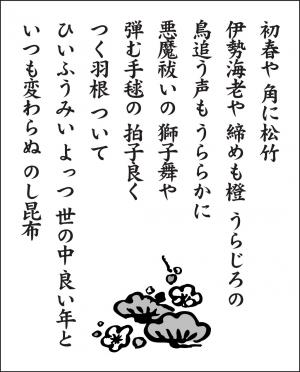 初春や 角に松竹
伊勢海老や 締めも橙 うらじろの
鳥追う声も うららかに
悪魔祓いの 獅子舞や
弾む手毬の 拍子良く
つく羽根 ついて
ひいふうみい よっつ 世の中 良い年と
いつも変わらぬ のし昆布